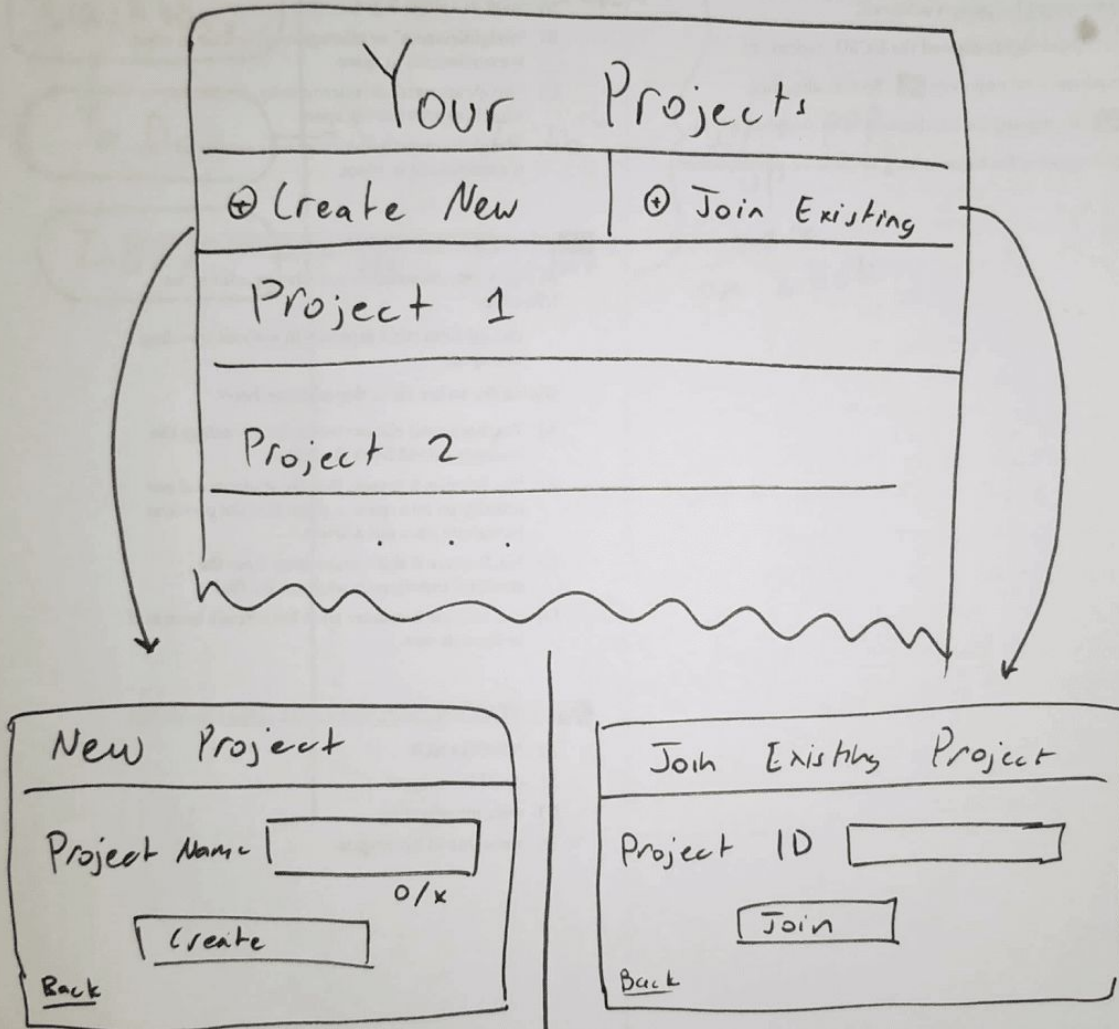 Your Projects
⊕ Create New
⊕ Join Existing
Project 1
Project 2
. . .
New Project
Project Name
0/x
Create
Back
Join Existing Project
Project ID
Join
Back